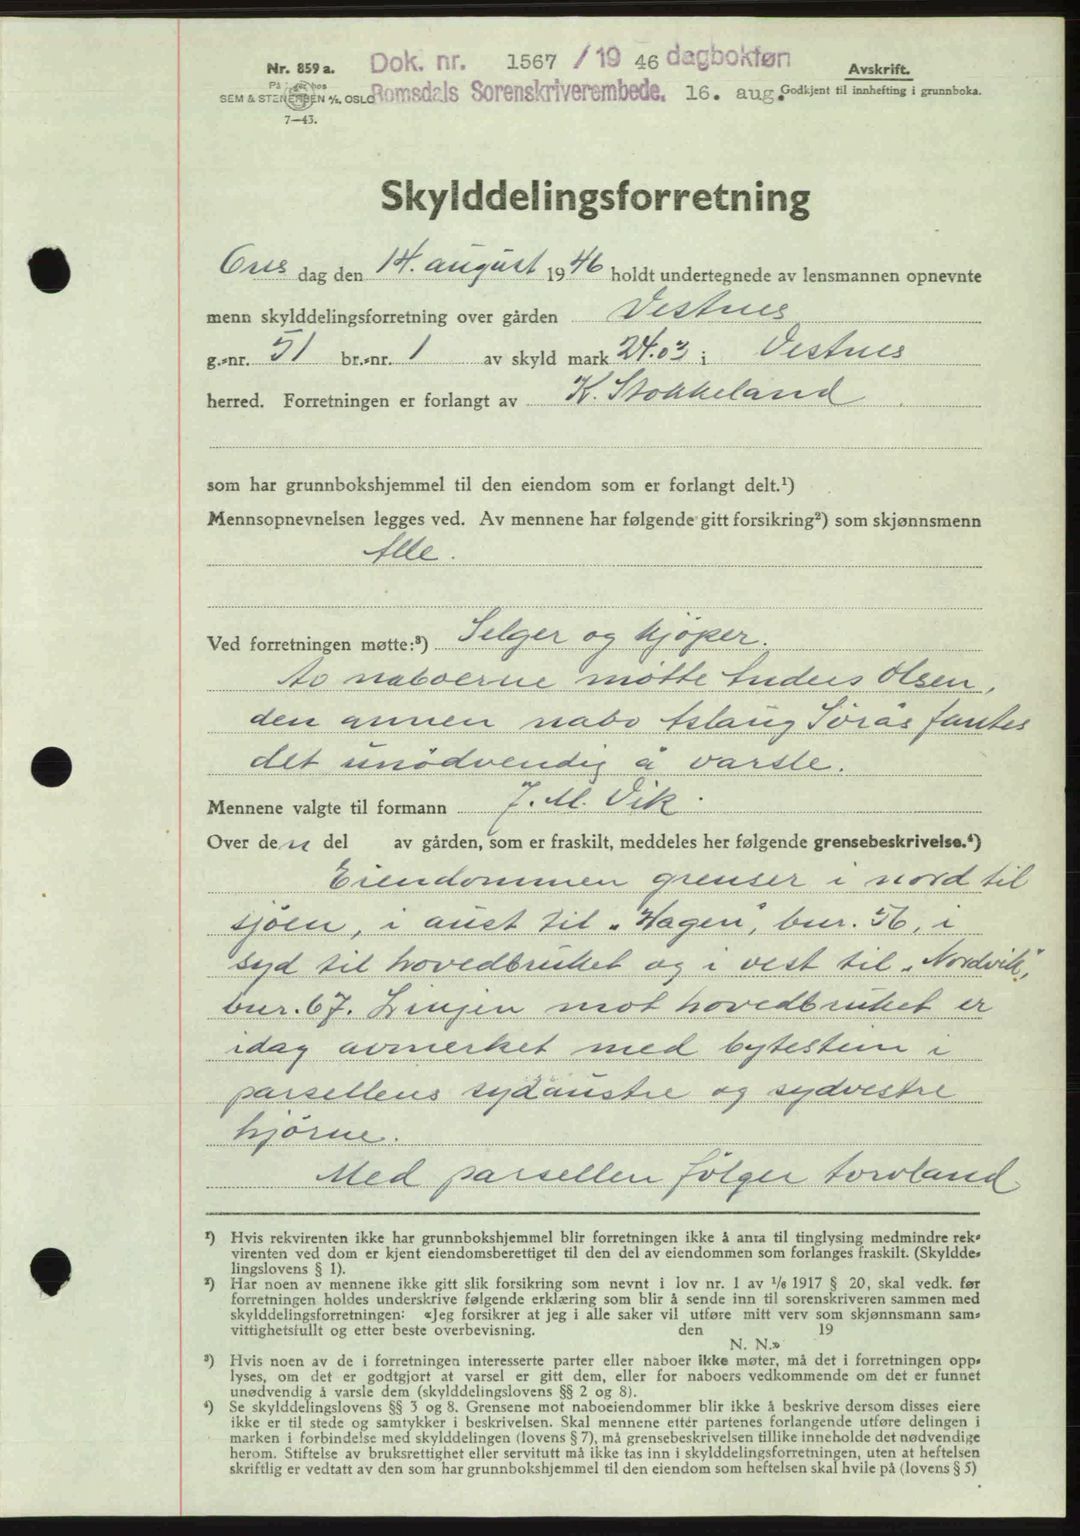 Nr. 859 a.
På lager hos
SEM & STENERSEN A/S, OSLO
7—43.
Dok. nr. 1567 / 19 46 dagbokføn
Romsdals Sorenskriverembede. 16. aug.
Avskrift.
Godkjent til innhefting i grunnboka.
Skylddelingsforretning
Ons dag den 14. august 19 46 holdt undertegnede av lensmannen opnevnte
menn skylddelingsforretning over gården Vestnes
g.-nr. 51 br.-nr. 1 av skyld mark 24.03 i Vestnes
herred. Forretningen er forlangt av K. Stokkeland
som har grunnbokshjemmel til den eiendom som er forlangt delt.¹)
Mennsopnevnelsen legges ved. Av mennene har følgende gitt forsikring²) som skjønnsmenn
Alle.
Ved forretningen møtte:³) Selger og kjøper.
Av naboerne møtte Anders Olsen,
den annen nabo Aslaug Sørås fantes
det unødvendig å varsle.
Mennene valgte til formann J. M. Vik.
Over den del av gården, som er fraskilt, meddeles her følgende grensebeskrivelse.⁴)
Eiendommen grenser i nord til
sjøen, i aust til „Hagen", bnr. 56, i
syd til hovedbruket og i vest til „Nordvik",
bnr. 67. Linjen mot hovedbruket er
idag avmerket med bytestein i
parsellens sydaustre og sydvestre
hjørne.
Med parsellen følger torvland
¹) Hvis rekvirenten ikke har grunnbokshjemmel blir forretningen ikke å anta til tinglysing medmindre rek-
virenten ved dom er kjent eiendomsberettiget til den del av eiendommen som forlanges fraskilt. (Skyldde-
lingslovens § 1).
²) Har noen av mennene ikke gitt slik forsikring som nevnt i lov nr. 1 av 1/6 1917 § 20, skal vedk. før
forretningen holdes underskrive følgende erklæring som blir å sende inn til sorenskriveren sammen med
skylddelingsforretningen: «Jeg forsikrer at jeg i alle saker vil utføre mitt verv som skjønnsmann sam-
vittighetsfullt og etter beste overbevisning. den 19
N. N.»
³) Hvis noen av de i forretningen interesserte parter eller naboer ikke møter, må det i forretningen opp-
lyses, om det er godtgjort at varsel er gitt dem, eller for naboers vedkommende om det er funnet
unødvendig å varsle dem (skylddelingslovens §§ 2 og 8).
⁴) Se skylddelingslovens §§ 3 og 8. Grensene mot naboeiendommer blir ikke å beskrive dersom disses eiere
ikke er til stede og samtykker i beskrivelsen. Skal mennene etter partenes forlangende utføre delingen i
marken i forbindelse med skylddelingen (lovens § 7), må grensebeskrivelsen tillike inneholde det nødvendige
herom. Stiftelse av bruksrettighet eller servitutt må ikke tas inn i skylddelingsforretningen, uten at heftelsen
skriftlig er vedtatt av den som har grunnbokshjemmel til den eiendom som heftelsen skal hvile på (lovens § 5)